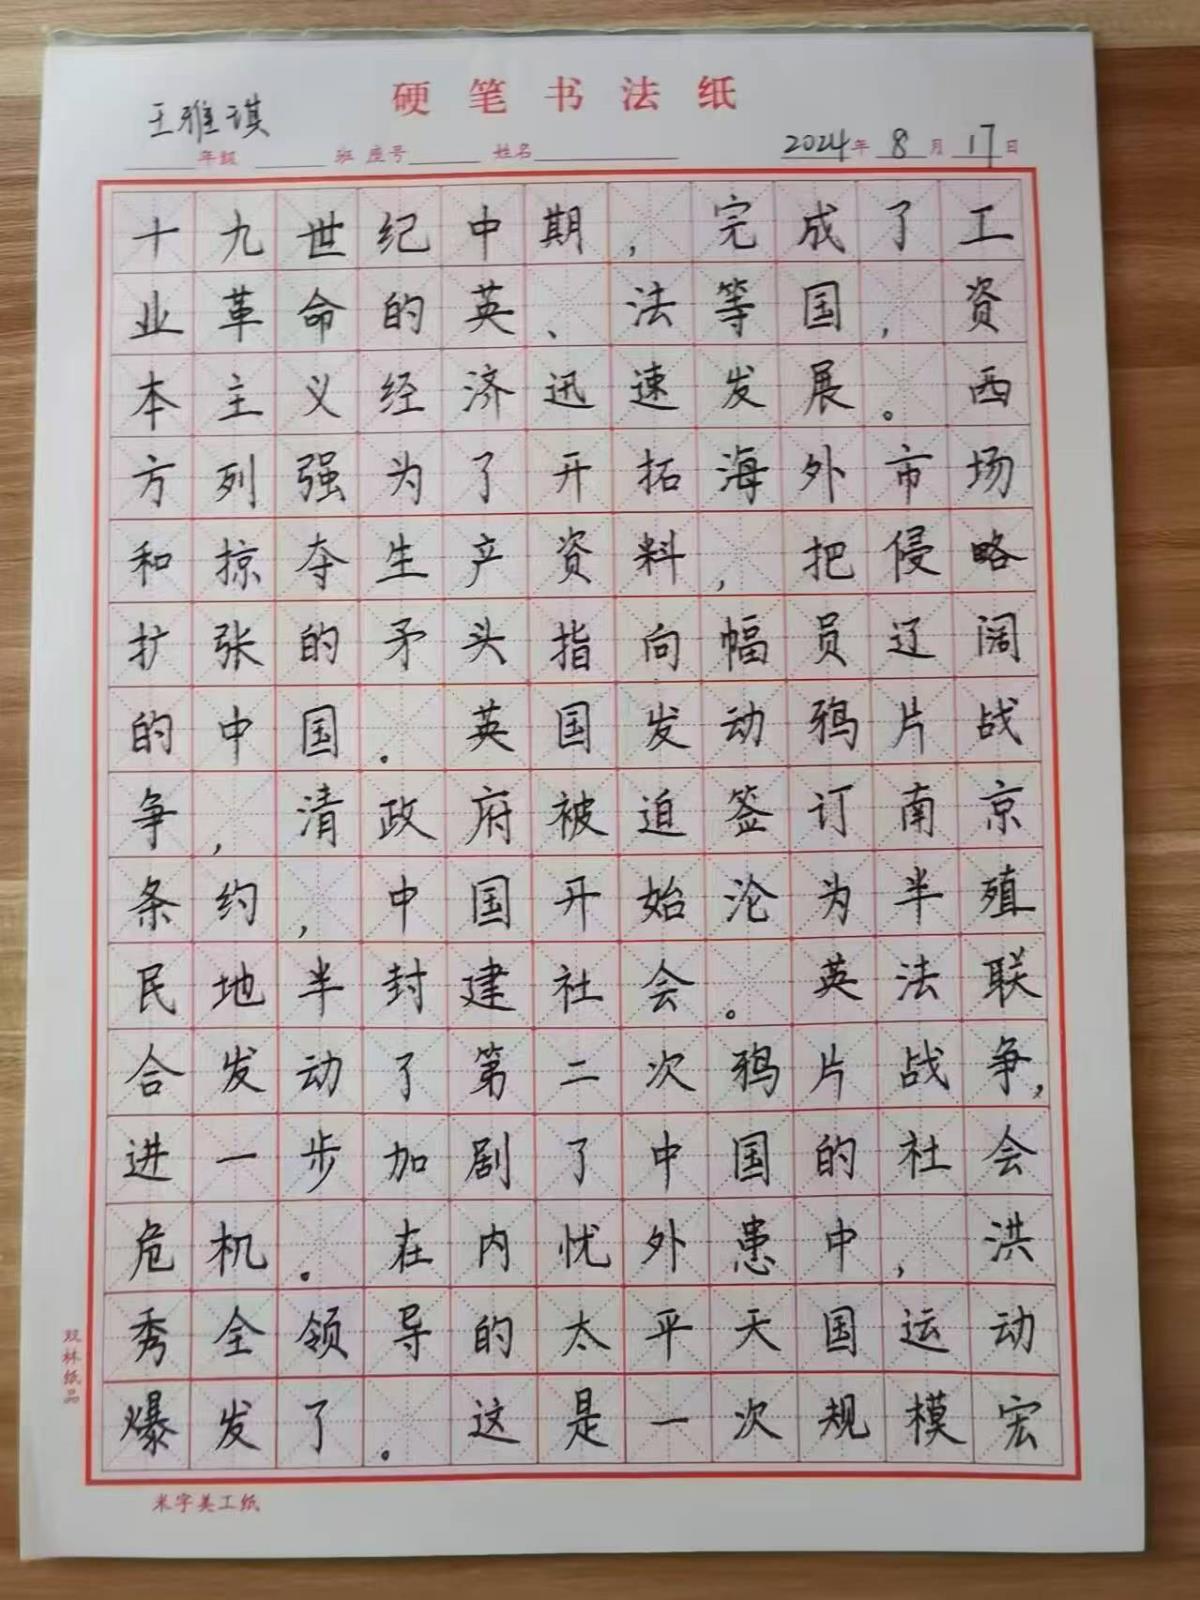 硬笔书法纸
王雅琪
年级 班 座号 姓名 2024年8月17日
十九世纪中期，完成了工
业革命的英、法等国，资
本主义经济迅速发展。西
方列强为了开拓海外市场
和掠夺生产资料，把侵略
扩张的矛头指向幅员辽阔
的中国。英国发动鸦片战
争，清政府被迫签订南京
条约，中国开始沦为半殖
民地半封建社会。英法联
合发动了第二次鸦片战争，
进一步加剧了中国的社会
危机。在内忧外患中，洪
秀全领导的太平天国运动
爆发了。这是一次规模宏
双林纸品
米字美工纸